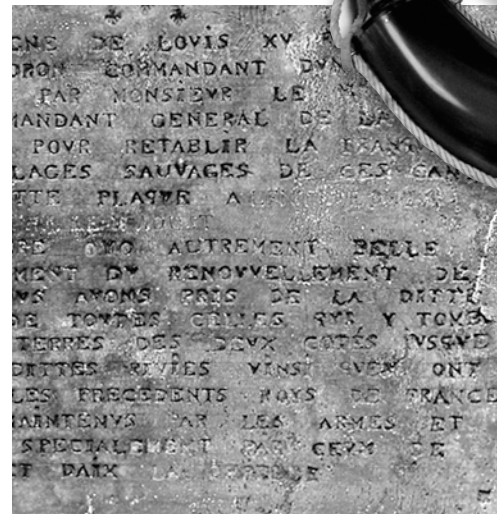 GNE DE LOVIS XV
DRON COMMANDANT DVN
PAR MONSIEVR LE
MANDANT GENERAL DE LA
POVR RETABLIR LA TRAN
LAGES SAUVAGES DE CES CAN
TTE PLAQVE A
RE OYO AUTREMENT BELLE
MENT DV RENOVVELLEMENT DE
VS AVONS PRIS DE LA DITTE
DE TOVTES CELLES QVE Y TOMB
TERRES DES DEVX COTÉS IVSQVE
DITTES RIVIES VINSI QVEN ONT
LES PRECEDENTS ROYS DE FRANCE
MAINTENVS PAR LES ARMES ET
SPECIALEMENT PAR CEVX DE
ET DAIX LA